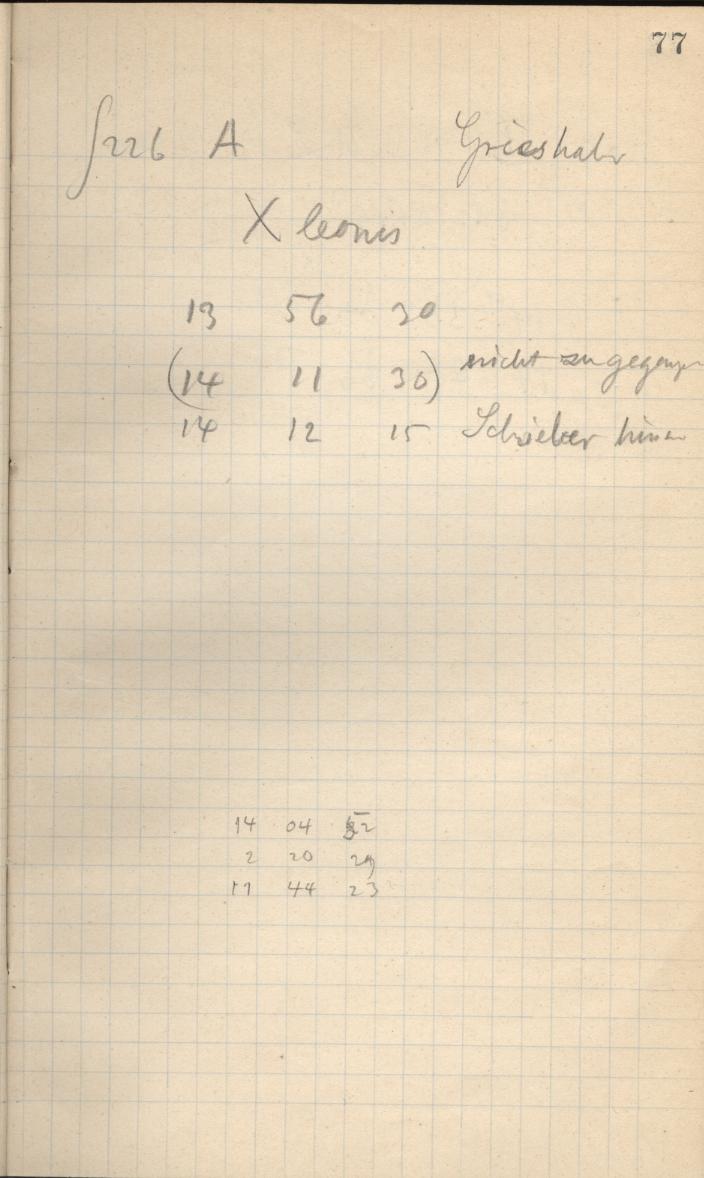 77
∫226 A Grieshaber
X Leonis
13 56 30
(14 11 30) nicht zugegangen
14 12 15 Schieber
14 04 52
2 20 29
11 44 23